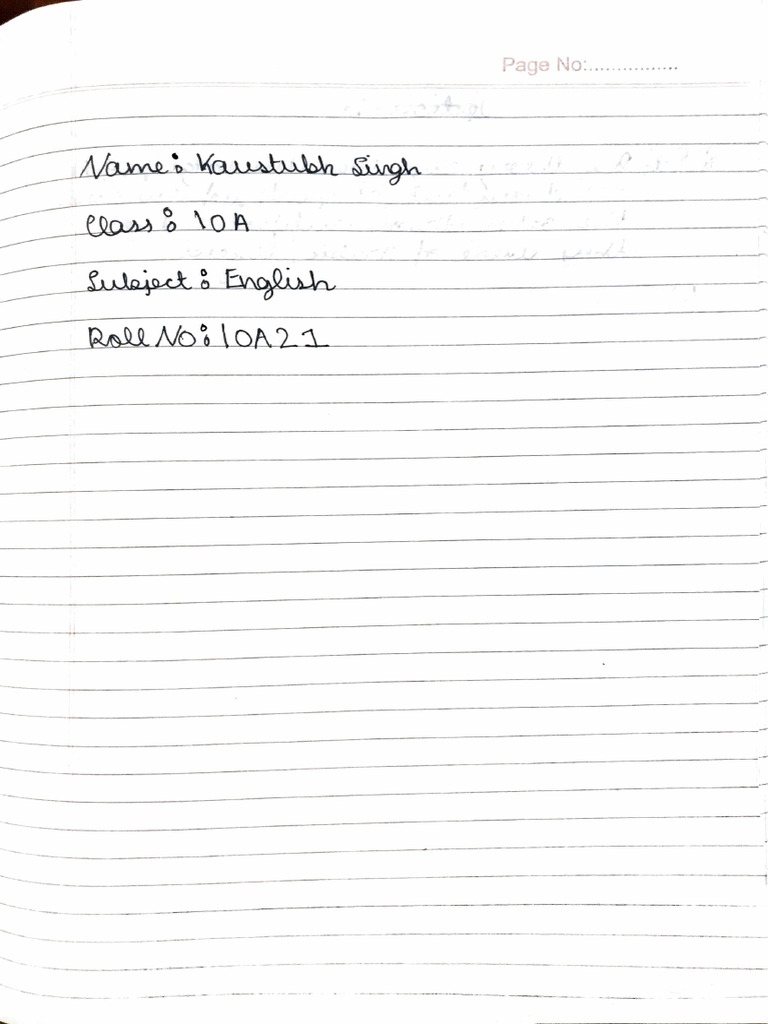 Page No:...............
Name: Kaustubh Singh
Class: 10A
Subject: English
Roll No: 10A21